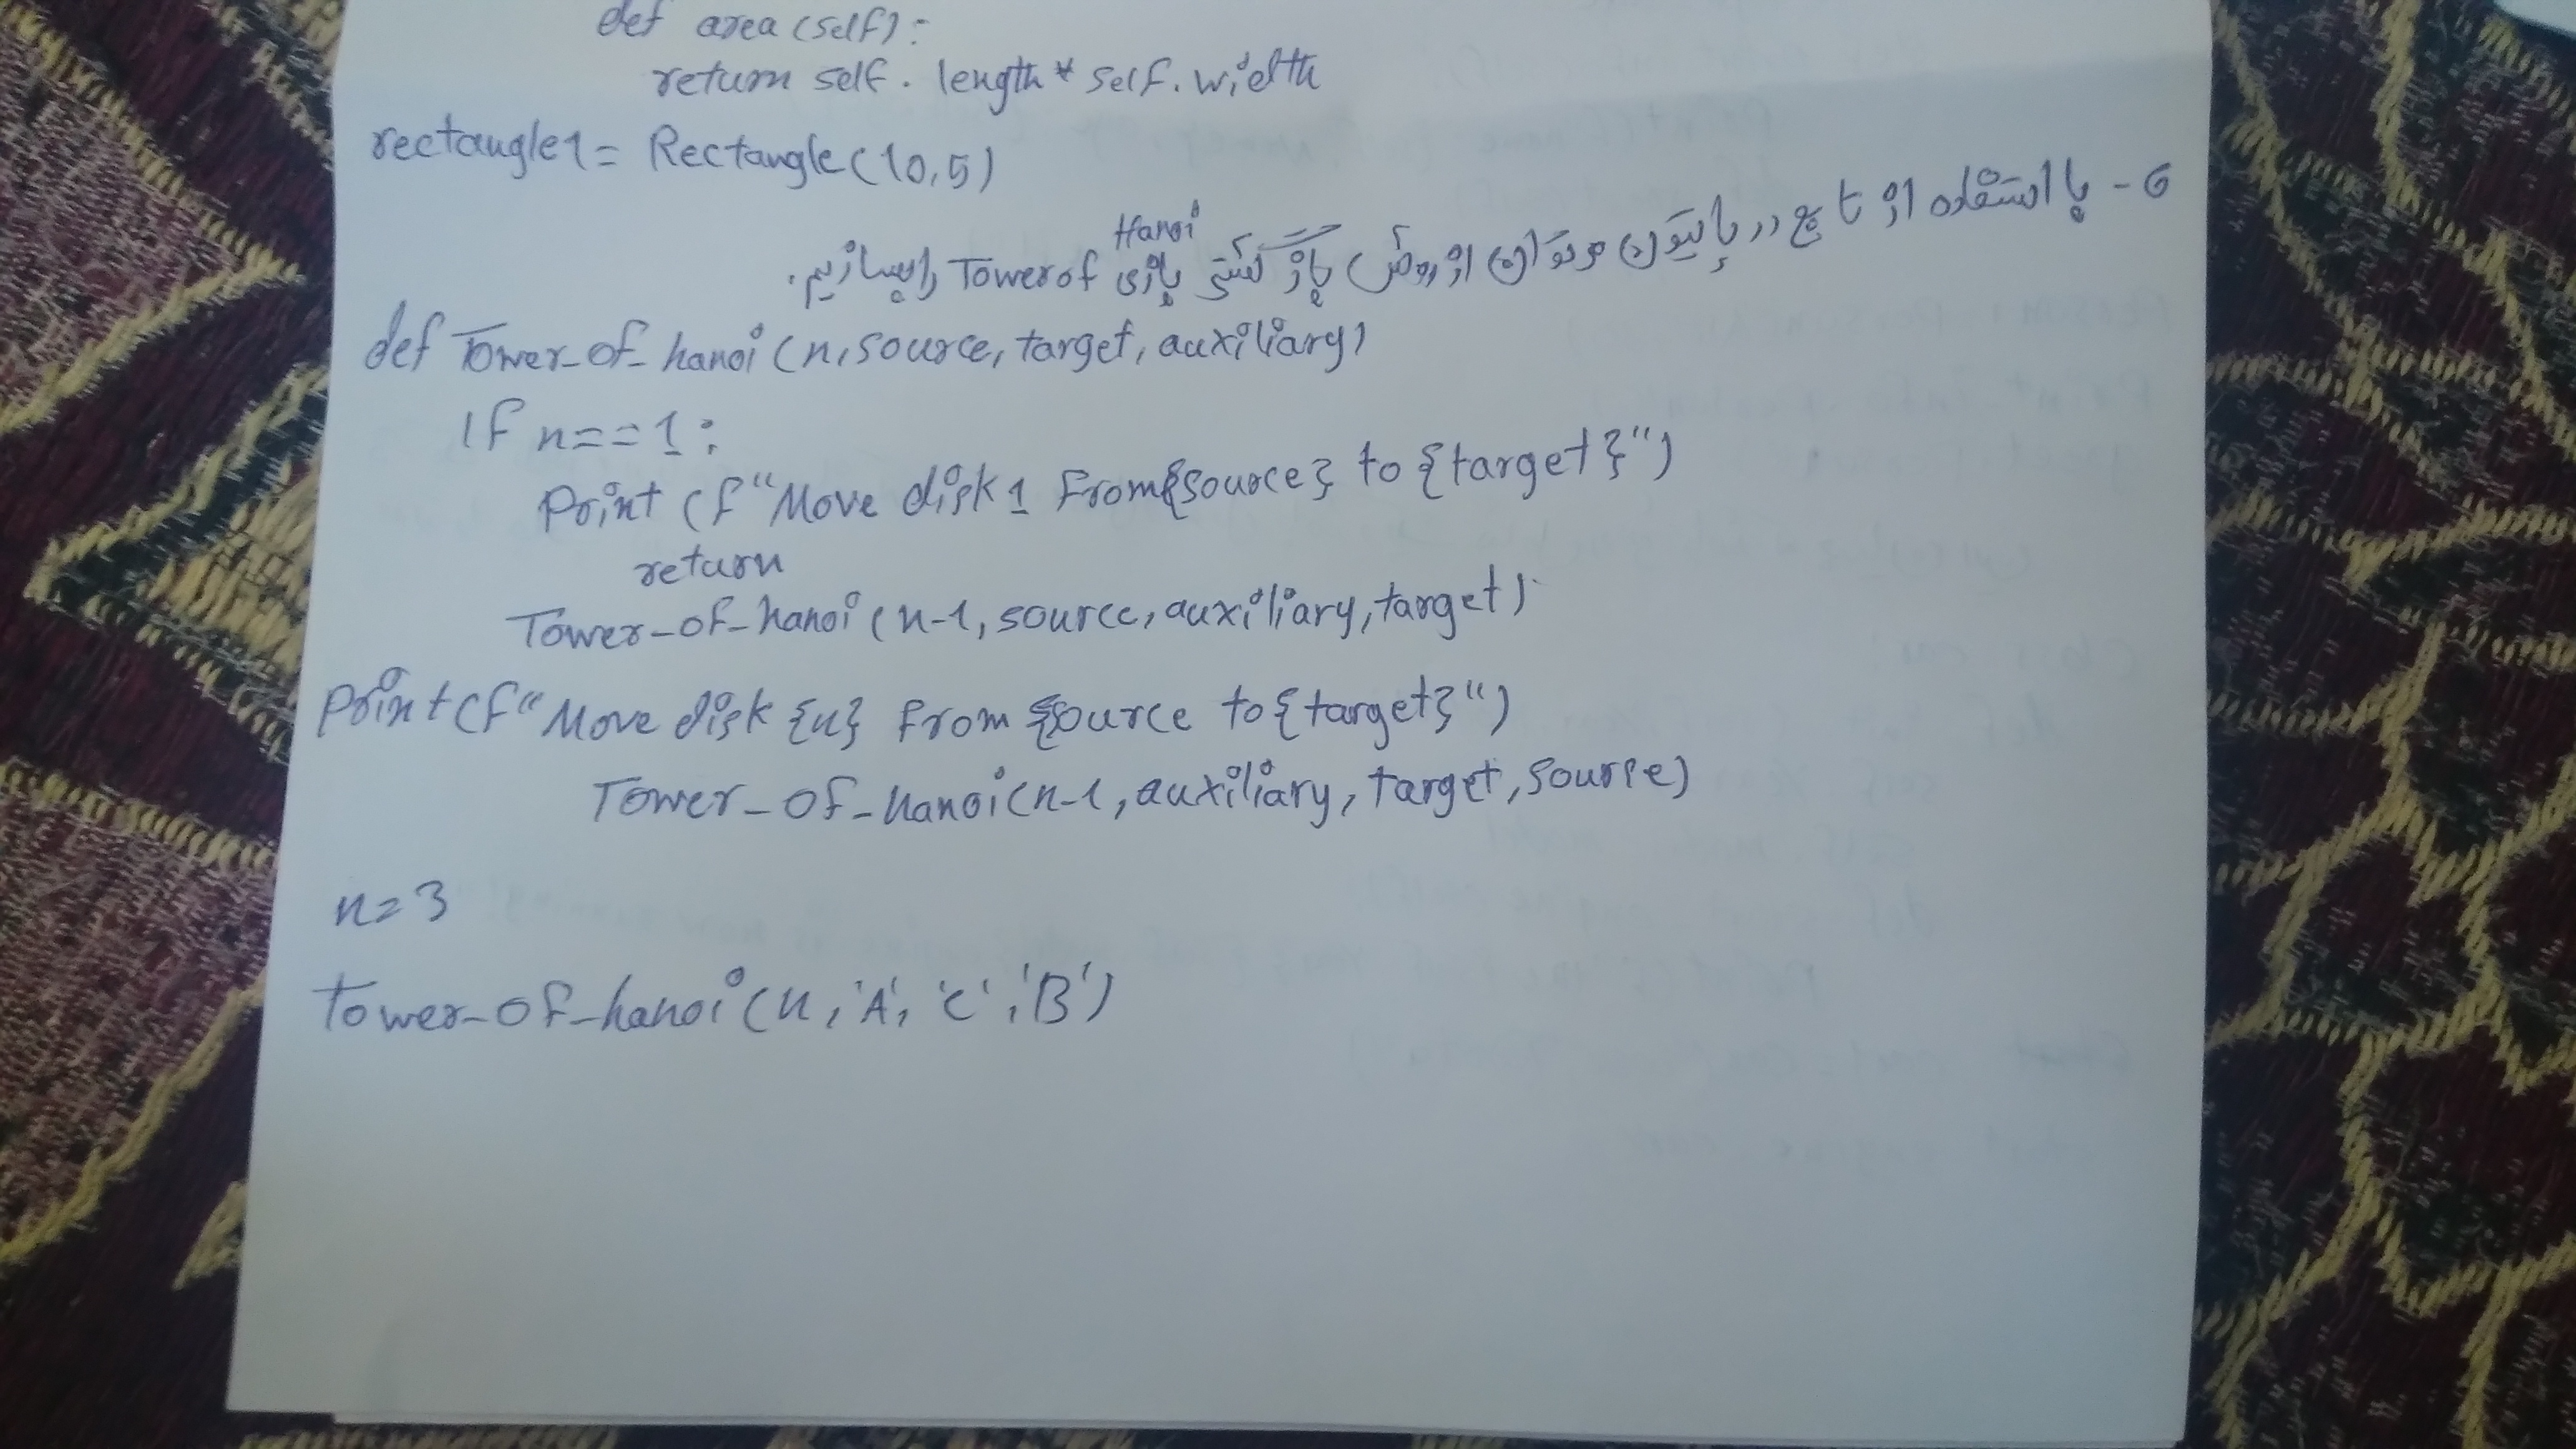 def area (self):
return self. length * self. width
rectangle1 = Rectangle (10,5)
Hanoi
Tower of
def Tower_of_hanoi (n, source, target, auxiliary)
If n==1:
Print (f"Move disk 1 from {source} to {target}")
return
Tower_of_hanoi (n-1, source, auxiliary, target)
Print (f"Move disk {n} from source to {target}")
Tower_of_hanoi (n-1, auxiliary, target, source)
n=3
Tower_of_hanoi (n, 'A', 'C', 'B')